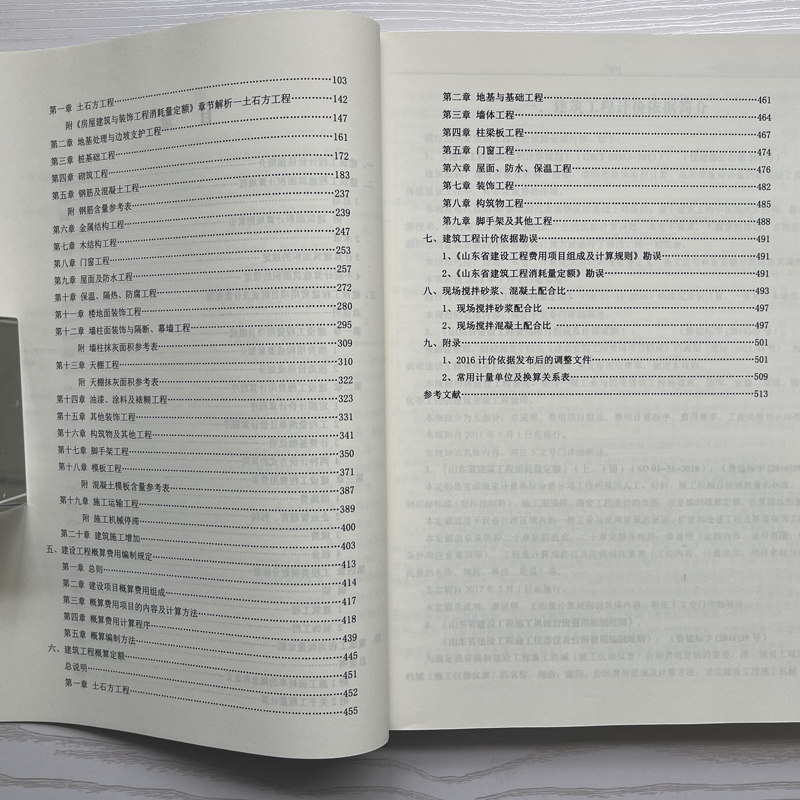 第一章 土石方工程……103
附《房屋建筑与装饰工程消耗量定额》章节解析—土石方工程……142
第二章 地基处理与边坡支护工程……147
第三章 桩基础工程……161
第四章 砌筑工程……172
第五章 钢筋及混凝土工程……183
附 钢筋含量参考表……237
第六章 金属结构工程……239
第七章 木结构工程……247
第八章 门窗工程……253
第九章 屋面及防水工程……257
第十章 保温、隔热、防腐工程……272
第十一章 楼地面装饰工程……280
第十二章 墙柱面装饰与隔断、幕墙工程……295
附 墙柱抹灰面积参考表……309
第十三章 天棚工程……310
附 天棚抹灰面积参考表……322
第十四章 油漆、涂料及裱糊工程……323
第十五章 其他装饰工程……331
第十六章 构筑物及其他工程……341
第十七章 脚手架工程……350
第十八章 模板工程……371
附 混凝土模板含量参考表……387
第十九章 施工运输工程……389
附 施工机械停滞……400
第二十章 建筑施工增加……403
五、建设工程概算费用编制规定……413
第一章 总则……414
第二章 建设项目概算费用组成……417
第三章 概算费用项目的内容及计算方法……418
第四章 概算费用计算程序……439
第五章 概算编制方法……445
六、建筑工程概算定额……451
总说明……452
第一章 土石方工程……455
第二章 地基与基础工程……461
第三章 墙体工程……464
第四章 柱梁板工程……467
第五章 门窗工程……474
第六章 屋面、防水、保温工程……476
第七章 装饰工程……482
第八章 构筑物工程……485
第九章 脚手架及其他工程……488
七、建筑工程计价依据勘误……491
1、《山东省建设工程费用项目组成及计算规则》勘误……491
2、《山东省建筑工程消耗量定额》勘误……491
八、现场搅拌砂浆、混凝土配合比……493
1、现场搅拌砂浆配合比……497
2、现场搅拌混凝土配合比……497
九、附录……501
1、2016计价依据发布后的调整文件……501
2、常用计量单位及换算关系表……509
参考文献……513